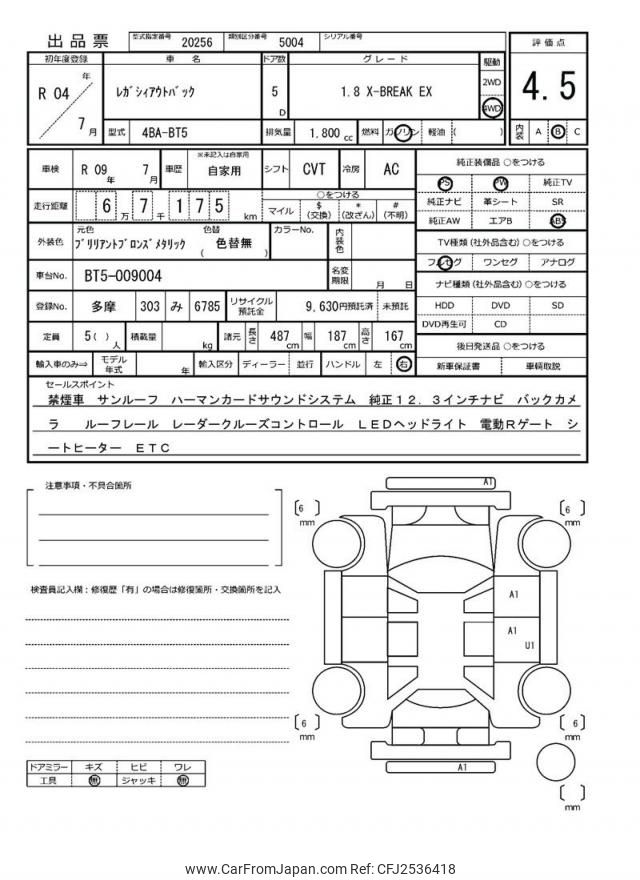 出品票 型式指定番号 20256 類別区分番号 5004 シリアル番号
初年度登録 車名 ドア数 グレード 駆動 評価点
R 04 年 7 月 ﾚｶﾞｼｨｱｳﾄﾊﾞｯｸ 5 D 1.8 X-BREAK EX 2WD 4WD 4.5
型式 4BA-BT5 排気量 1.800 cc 燃料 ガソリン 軽油 ( ) 内装 A B C
車検 R 09 年 7 月 車歴 ※未記入は自家用 自家用 シフト CVT 冷房 AC
走行距離 6 万 7 千 1 7 5 km ○をつける
マイル $ (交換) * (改ざん) # (不明)
外装色 元色 ﾌﾞﾘﾘｱﾝﾄﾌﾞﾛﾝｽﾞﾒﾀﾘｯｸ 色替 ( 色替無 ) カラーNo. 内装色
車台No. BT5-009004 名変期限 月 日
登録No. 多摩 303 み 6785 リサイクル預託金 9,630円預託済 未預託
定員 5( ) 人 積載量 kg 諸元 長さ 487 cm 幅 187 cm 高さ 167 cm
輸入車のみ⇒ モデル年式 年 輸入区分 ディーラー 並行 ハンドル 左 右
純正装備品 ○をつける
PS PW 純正TV
純正ナビ 革シート SR
純正AW エアB ABS
TV種類 (社外品含む) ○をつける
フルセグ ワンセグ アナログ
ナビ種類 (社外品含む) ○をつける
HDD DVD SD
DVD再生可 CD
後日発送品 ○をつける
新車保証書 車輌取説
セールスポイント
禁煙車 サンルーフ ハーマンカードサウンドシステム 純正12.3インチナビ バックカメ
ラ ルーフレール レーダークルーズコントロール LEDヘッドライト 電動Rゲート シ
ートヒーター ETC
注意事項・不具合箇所
検査員記入欄：修復歴「有」の場合は修復箇所・交換箇所を記入
ドアミラー キズ ヒビ ワレ
工具 無 ジャッキ 無
A1
6 mm
6 mm
A1
A1
U1
6 mm
6 mm
A1
mm
www.CarFromJapan.com Ref: CFJ2536418